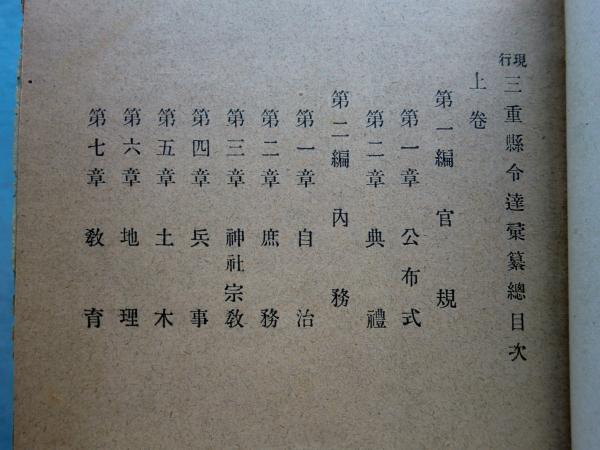 現行三重縣令達彙纂總目次
上卷
第一編 官規
第一章 公布式
第二章 典禮
第二編 內務
第一章 自治
第二章 庶務
第三章 神社宗敎
第四章 兵事
第五章 土木
第六章 地理
第七章 敎育